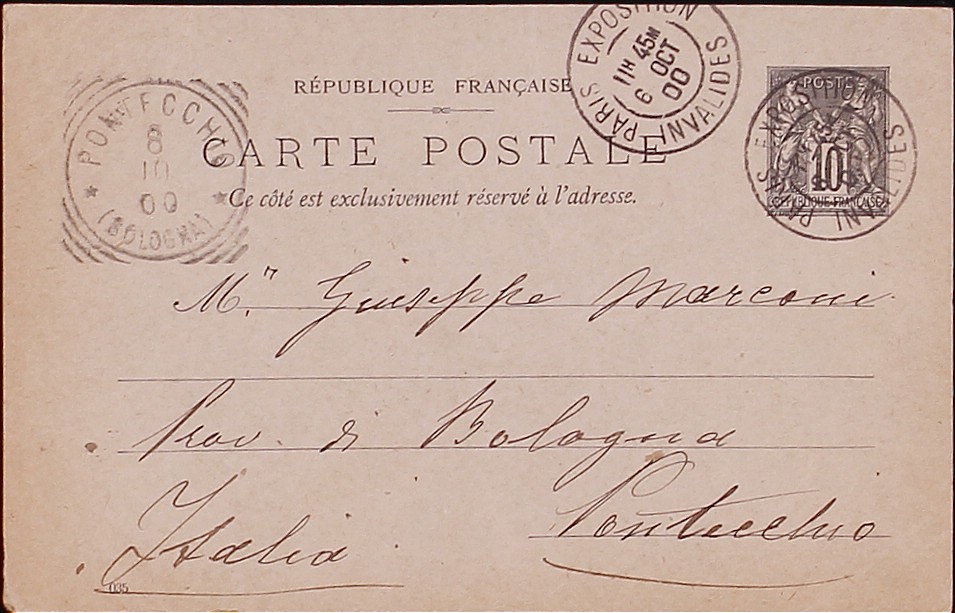 RÉPUBLIQUE FRANÇAISE
CARTE POSTALE
Ce côté est exclusivement réservé à l'adresse.
PARIS EXPOSITION INVALIDES
11H 45M
6 OCT
00
POSTES
10
RÉPUBLIQUE FRANÇAISE
PARIS EXPOSITION INVALIDES
PONTECCHIO
8
10
00
(BOLOGNA)
Mr. Giuseppe Marconi
Prov. di Bologna
Pontecchio
Italia
035